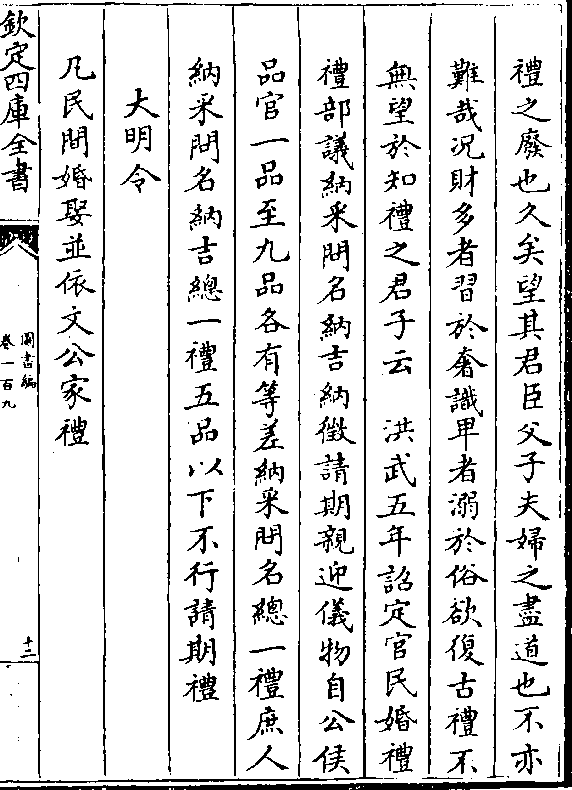 禮之廢也久矣望其君臣父子夫婦之盡道也不亦
難哉况財多者習於奢識甲者溺於俗欲復古禮不
無望於知禮之君子云　洪武五年詔定官民婚禮
禮部議納采問名納吉納徵請期親迎儀物自公侯
品官一品至九品各有等差納采問名總一禮庶人
納采問名納吉總一禮五品以下不行請期禮
大明令
凡民間婚娶並依文公家禮
欽定四庫全書
圖書編
卷一百九
十二